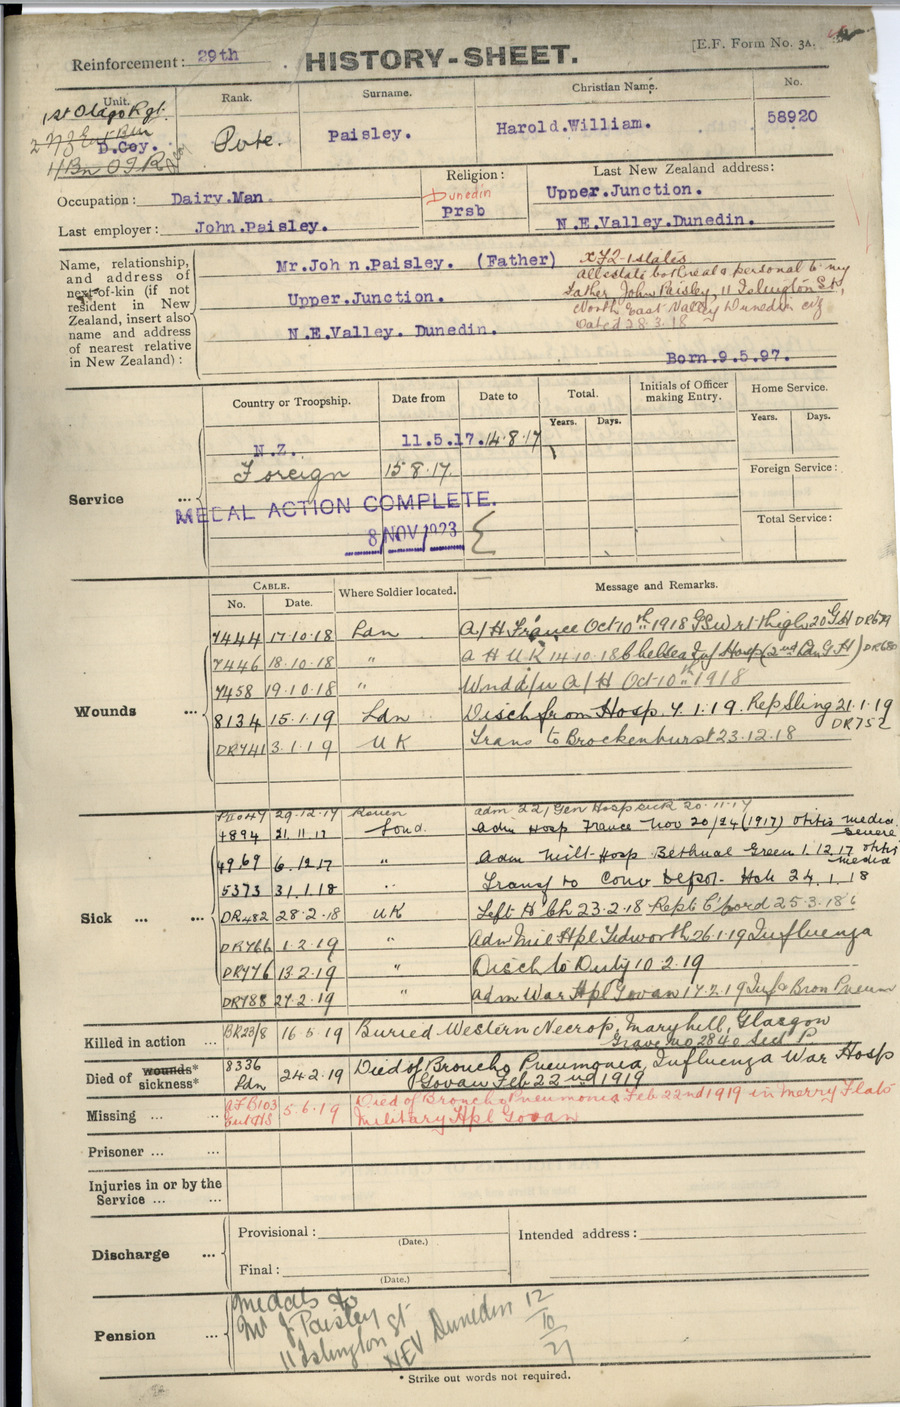 Reinforcement: 29th . HISTORY-SHEET. [E.F. Form No. 3A.
Unit. Rank. Surname. Christian Name. No.
1st Otago Rgt.
D.Coy. Pvte. Paisley. Harold.William. 58920
4 Bn O I R
Occupation: Dairy.Man. Religion: Dunedin Prsb Last New Zealand address: Upper.Junction.
Last employer: John.Paisley. N.E.Valley.Dunedin.
Name, relationship, and address of next-of-kin (if not resident in New Zealand, insert also name and address of nearest relative in New Zealand):
Mr.John.Paisley. (Father)
Upper.Junction.
N.E.Valley. Dunedin.
states
all estate both real & personal to my
Father John Paisley, 11 Islington St,
North East Valley Dunedin NZ
Dated 28.3.18
Born.9.5.97.
Service ...
Country or Troopship. Date from Date to Total. Initials of Officer making Entry. Home Service.
Years. Days. Years. Days.
N.Z. 11.5.17. 14.8.17
Foreign 15.8.17. Foreign Service:
MEDAL ACTION COMPLETE.
8 NOV 1923 Total Service:
Wounds ...
CABLE. Where Soldier located. Message and Remarks.
No. Date.
7444 17.10.18 Ldn A/H France Oct 10th 1918 GSW rt thigh 20 GH DR679
7446 18.10.18 " A H U K 14.10.18 Chelsea Inf Hosp (2nd Ldn G H) DR680
7458 19.10.18 " Wndd A/H Oct 10th 1918
8134 15.1.19 Ldn Disch from Hosp. 7.1.19. Rep Sling 21.1.19 DR752
DR741 3.1.19 UK Trans to Brockenhurst 23.12.18
Sick ... ...
29.12.17 Rouen adm 22 Gen Hosp sick 20.11.17
4894 21.11.17 Lond. Adm Hosp France Nov 20/24 (1917) otitis media severe
4969 6.12.17 " Adm Milt Hosp Bethnal Green 1.12.17 otitis media
5373 31.1.18 " Transf to Conv Depot Hch 24.1.18
DR482 28.2.18 UK Left H Ch 23.2.18 Rept C'ford 25.3.18
DR766 1.2.19 " Adm Mil Hpl Tidworth 26.1.19 Influenza
DR776 13.2.19 " Disch to Duty 10.2.19
DR788 27.2.19 " Adm War Hpl Govan 17.2.19 Infa Bron Pneum
Killed in action ... 16.5.19 Buried Western Necrop, Maryhill, Glasgow
Grave no 2840 Sect P.
Died of wounds* sickness* 8336 Ldn 24.2.19 Died of Broncho Pneumonia, Influenza War Hosp
Govan Feb 22nd 1919
Missing ... .. AFB103 5.6.19 Died of Broncho Pneumonia Feb 22nd 1919 in Merry Flats
Military Hpl Govan
Prisoner ... ...
Injuries in or by the Service ... ...
Discharge ... Provisional: (Date.) Intended address:
Final: (Date.)
Pension ...
Medals to
Mr J Paisley
11 Islington St
NEV Dunedin 12/10/21
* Strike out words not required.